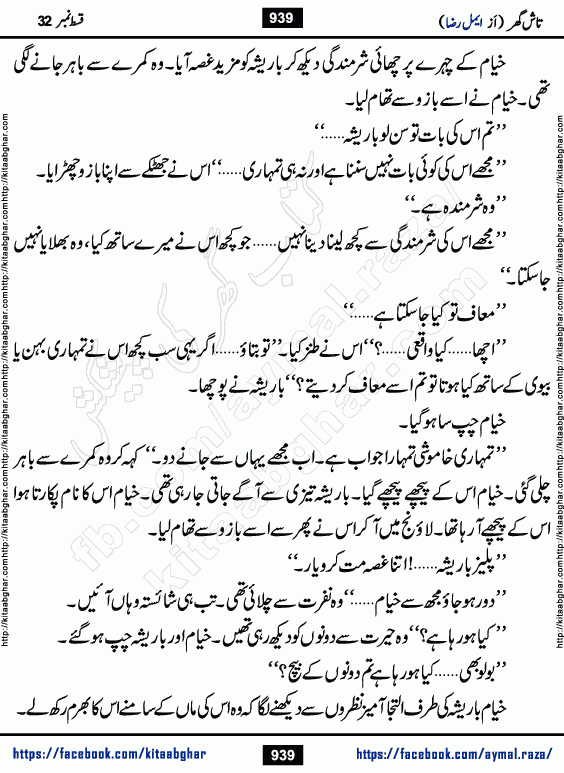 تاش گھر (از ایمل رضا) 939 قسط نمبر 32
خیام کے چہرے پر چھائی شرمندگی دیکھ کر باریشہ کو مزید غصہ آیا۔ وہ کمرے سے باہر جانے لگی
تھی۔ خیام نے اسے بازو سے تھام لیا۔
’’تم اس کی بات تو سن لو باریشہ......‘‘
’’مجھے اس کی کوئی بات نہیں سننا ہے اور نہ ہی تمہاری......‘‘ اس نے جھٹکے سے اپنا بازو چھڑایا۔
’’وہ شرمندہ ہے۔‘‘
’’مجھے اس کی شرمندگی سے کچھ لینا دینا نہیں...... جو کچھ اس نے میرے ساتھ کیا، وہ بھلایا نہیں
جا سکتا۔‘‘
’’معاف تو کیا جا سکتا ہے......‘‘
’’اچھا......کیا واقعی......؟‘‘ اس نے طنز کیا۔ ’’تو بتاؤ......اگر یہی سب کچھ اس نے تمہاری بہن یا
بیوی کے ساتھ کیا ہوتا تو تم اسے معاف کر دیتے؟‘‘ باریشہ نے پوچھا۔
خیام چپ سا ہو گیا۔
’’تمہاری خاموشی تمہارا جواب ہے۔ اب مجھے یہاں سے جانے دو۔‘‘ کہہ کر وہ کمرے سے باہر
چلی گئی۔ خیام اس کے پیچھے پیچھے گیا۔ باریشہ تیزی سے آگے جاتی جا رہی تھی۔ خیام اس کا نام پکارتا ہوا
اس کے پیچھے آ رہا تھا۔ لاؤنج میں آ کر اس نے پھر سے اسے بازو سے تھام لیا۔
’’پلیز باریشہ......! اتنا غصہ مت کرو یار۔‘‘
’’دور ہو جاؤ مجھ سے خیام......‘‘ وہ نفرت سے چلائی تھی۔ تب ہی شائستہ وہاں آئیں۔
’’کیا ہو رہا ہے؟‘‘ وہ حیرت سے دونوں کو دیکھ رہی تھیں۔ خیام اور باریشہ چپ ہو گئے۔
’’بولو بھی......کیا ہو رہا ہے تم دونوں کے بیچ؟‘‘
خیام باریشہ کی طرف التجا آمیز نظروں سے دیکھنے لگا کہ وہ اس کی ماں کے سامنے اس کا بھرم رکھ لے۔
https://facebook.com/kitaabghar 939 https://facebook.com/aymal.raza/
http://kitaabghar.comhttp://kitaabghar.comhttp://kitaabghar.comhttp://kitaabghar.comhttp://kitaabghar.com
http://kitaabghar.comhttp://kitaabghar.comhttp://kitaabghar.comhttp://kitaabghar.comhttp://kitaabghar.com
کتاب گھر کی پیشکش
fb.com/aymal.raza/
kitaabghar.com